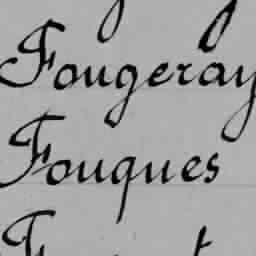 Fougeray
Fouques